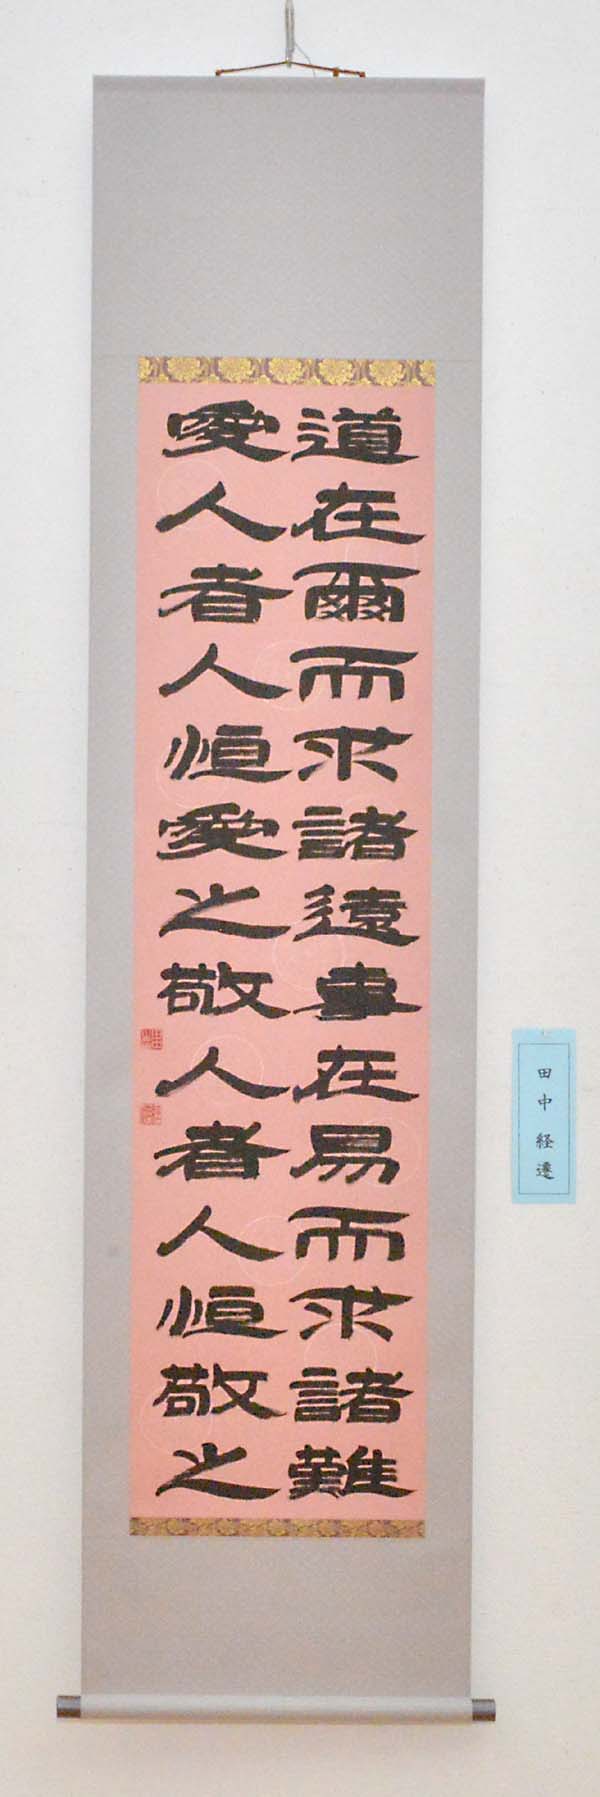 道在爾而求諸遠事在易而求諸難
愛人者人恒愛之敬人者人恒敬之
田中経遷